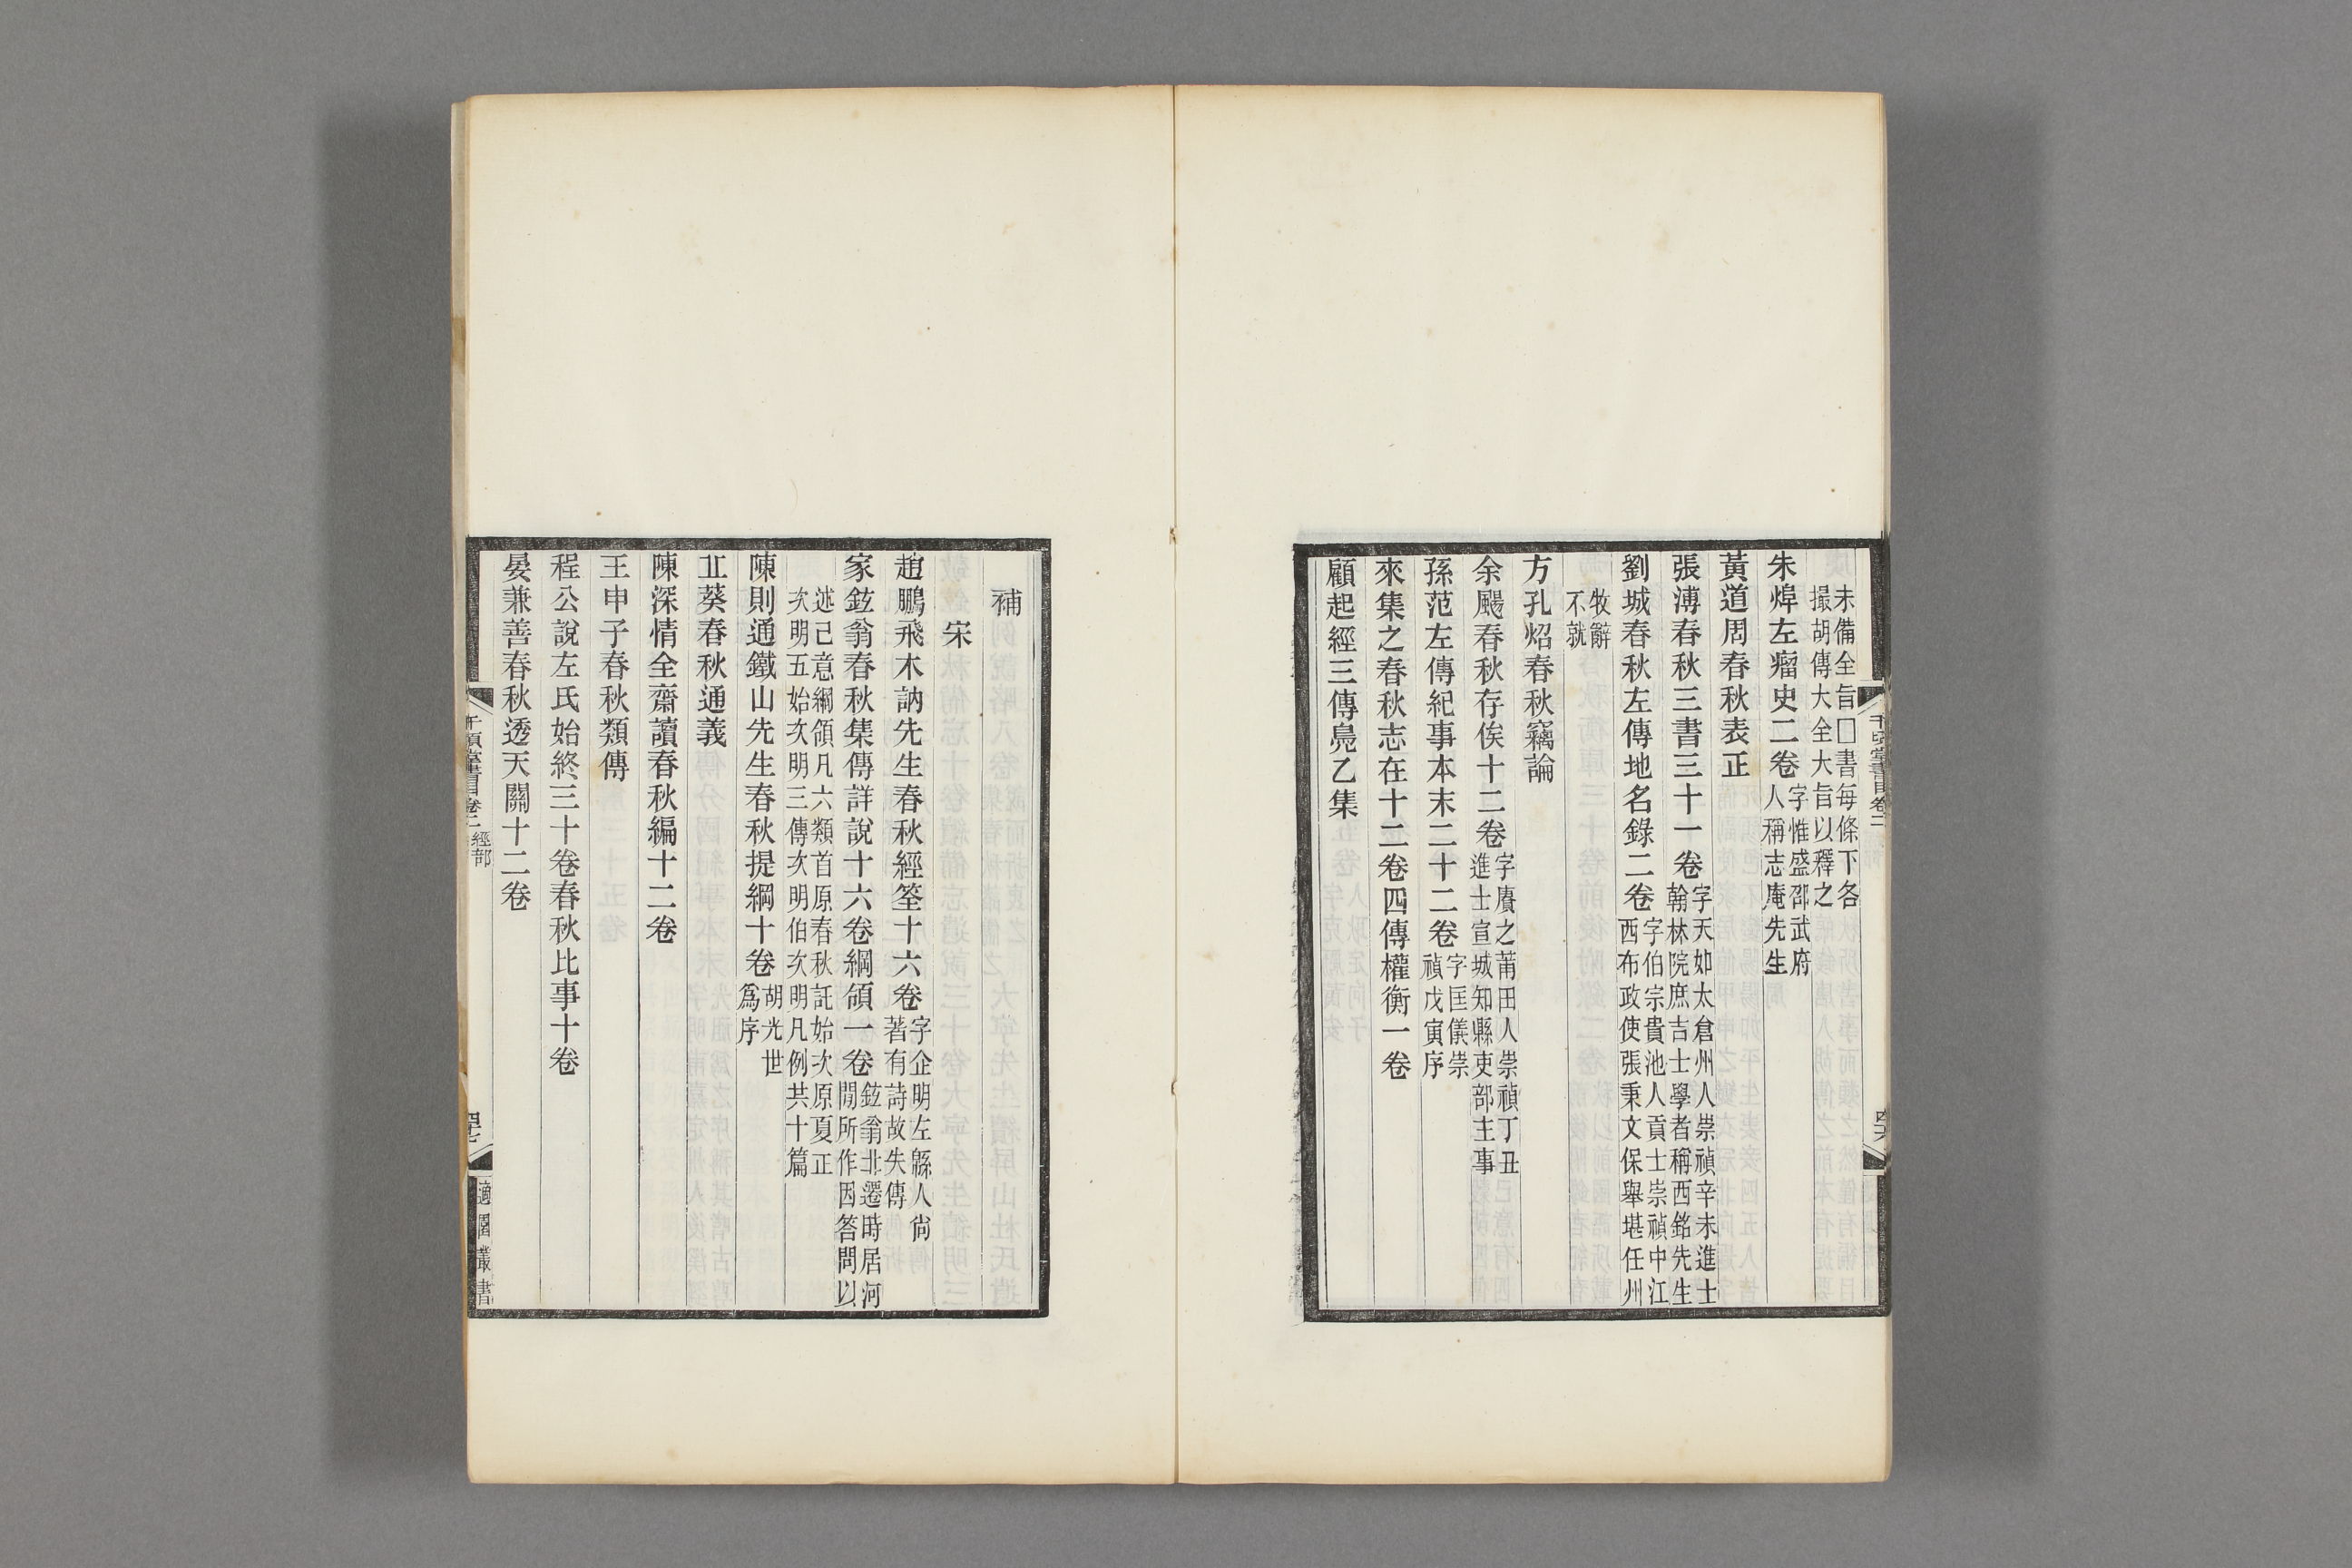 未備全旨□書每條下各
撮胡傳大全大旨以釋之
朱焯左瘤史二卷字惟盛邵武府
人稱志庵先生
黃道周春秋表正
張溥春秋三書三十一卷字天如太倉州人崇禎辛未進士
翰林院庶吉士學者稱西銘先生
劉城春秋左傳地名錄二卷字伯宗貴池人貢士崇禎中江
西布政使張秉文保舉堪任州
牧辭
不就
方孔炤春秋竊論
余颺春秋存俟十二卷字賡之莆田人崇禎丁丑
進士宣城知縣吏部主事
孫范左傳紀事本末二十二卷字匡儀崇
禎戊寅序
來集之春秋志在十二卷四傳權衡一卷
顧起經三傳鳧乙集
千頃堂書目卷二
四六
補
宋
趙鵬飛木訥先生春秋經筌十六卷字企明左緜人尙
著有詩故失傳
家鉉翁春秋集傳詳說十六卷綱領一卷鉉翁北遷時居河
間所作因答問以
述己意綱領凡六類首原春秋託始次原夏正
次明五始次明三傳次明伯次明凡例共十篇
陳則通鐵山先生春秋提綱十卷胡光世
爲序
丘葵春秋通義
陳深情全齋讀春秋編十二卷
王申子春秋類傳
程公說左氏始終三十卷春秋比事十卷
晏兼善春秋透天關十二卷
千頃堂書目卷二 經部
四七
適園叢書